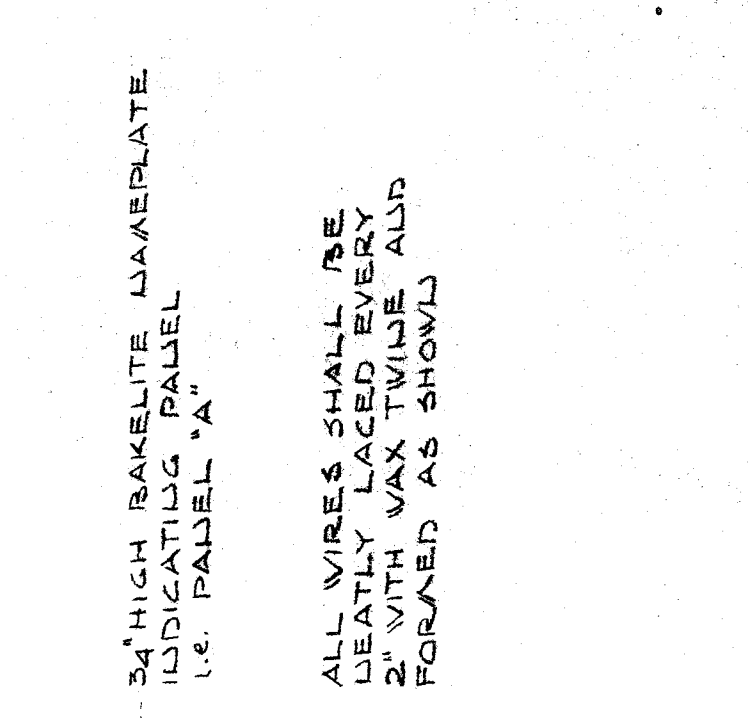 34" HIGH BAKELITE NAMEPLATE
INDICATING PANEL
i.e. PANEL "A"
ALL WIRES SHALL BE
NEATLY LACED EVERY
2" WITH WAX TWINE AND
FORMED AS SHOWN